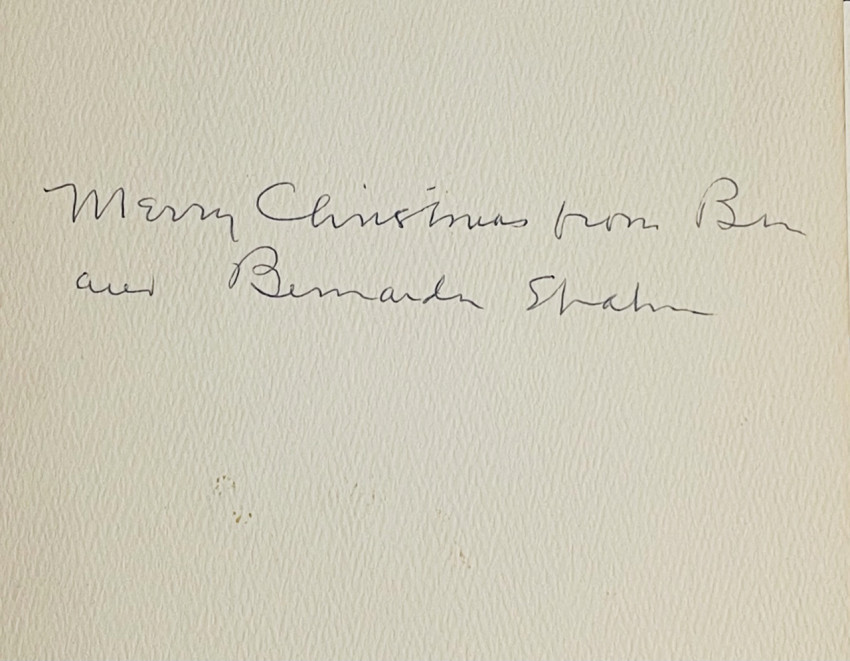 Merry Christmas from Ben
and Bernarda Shahn